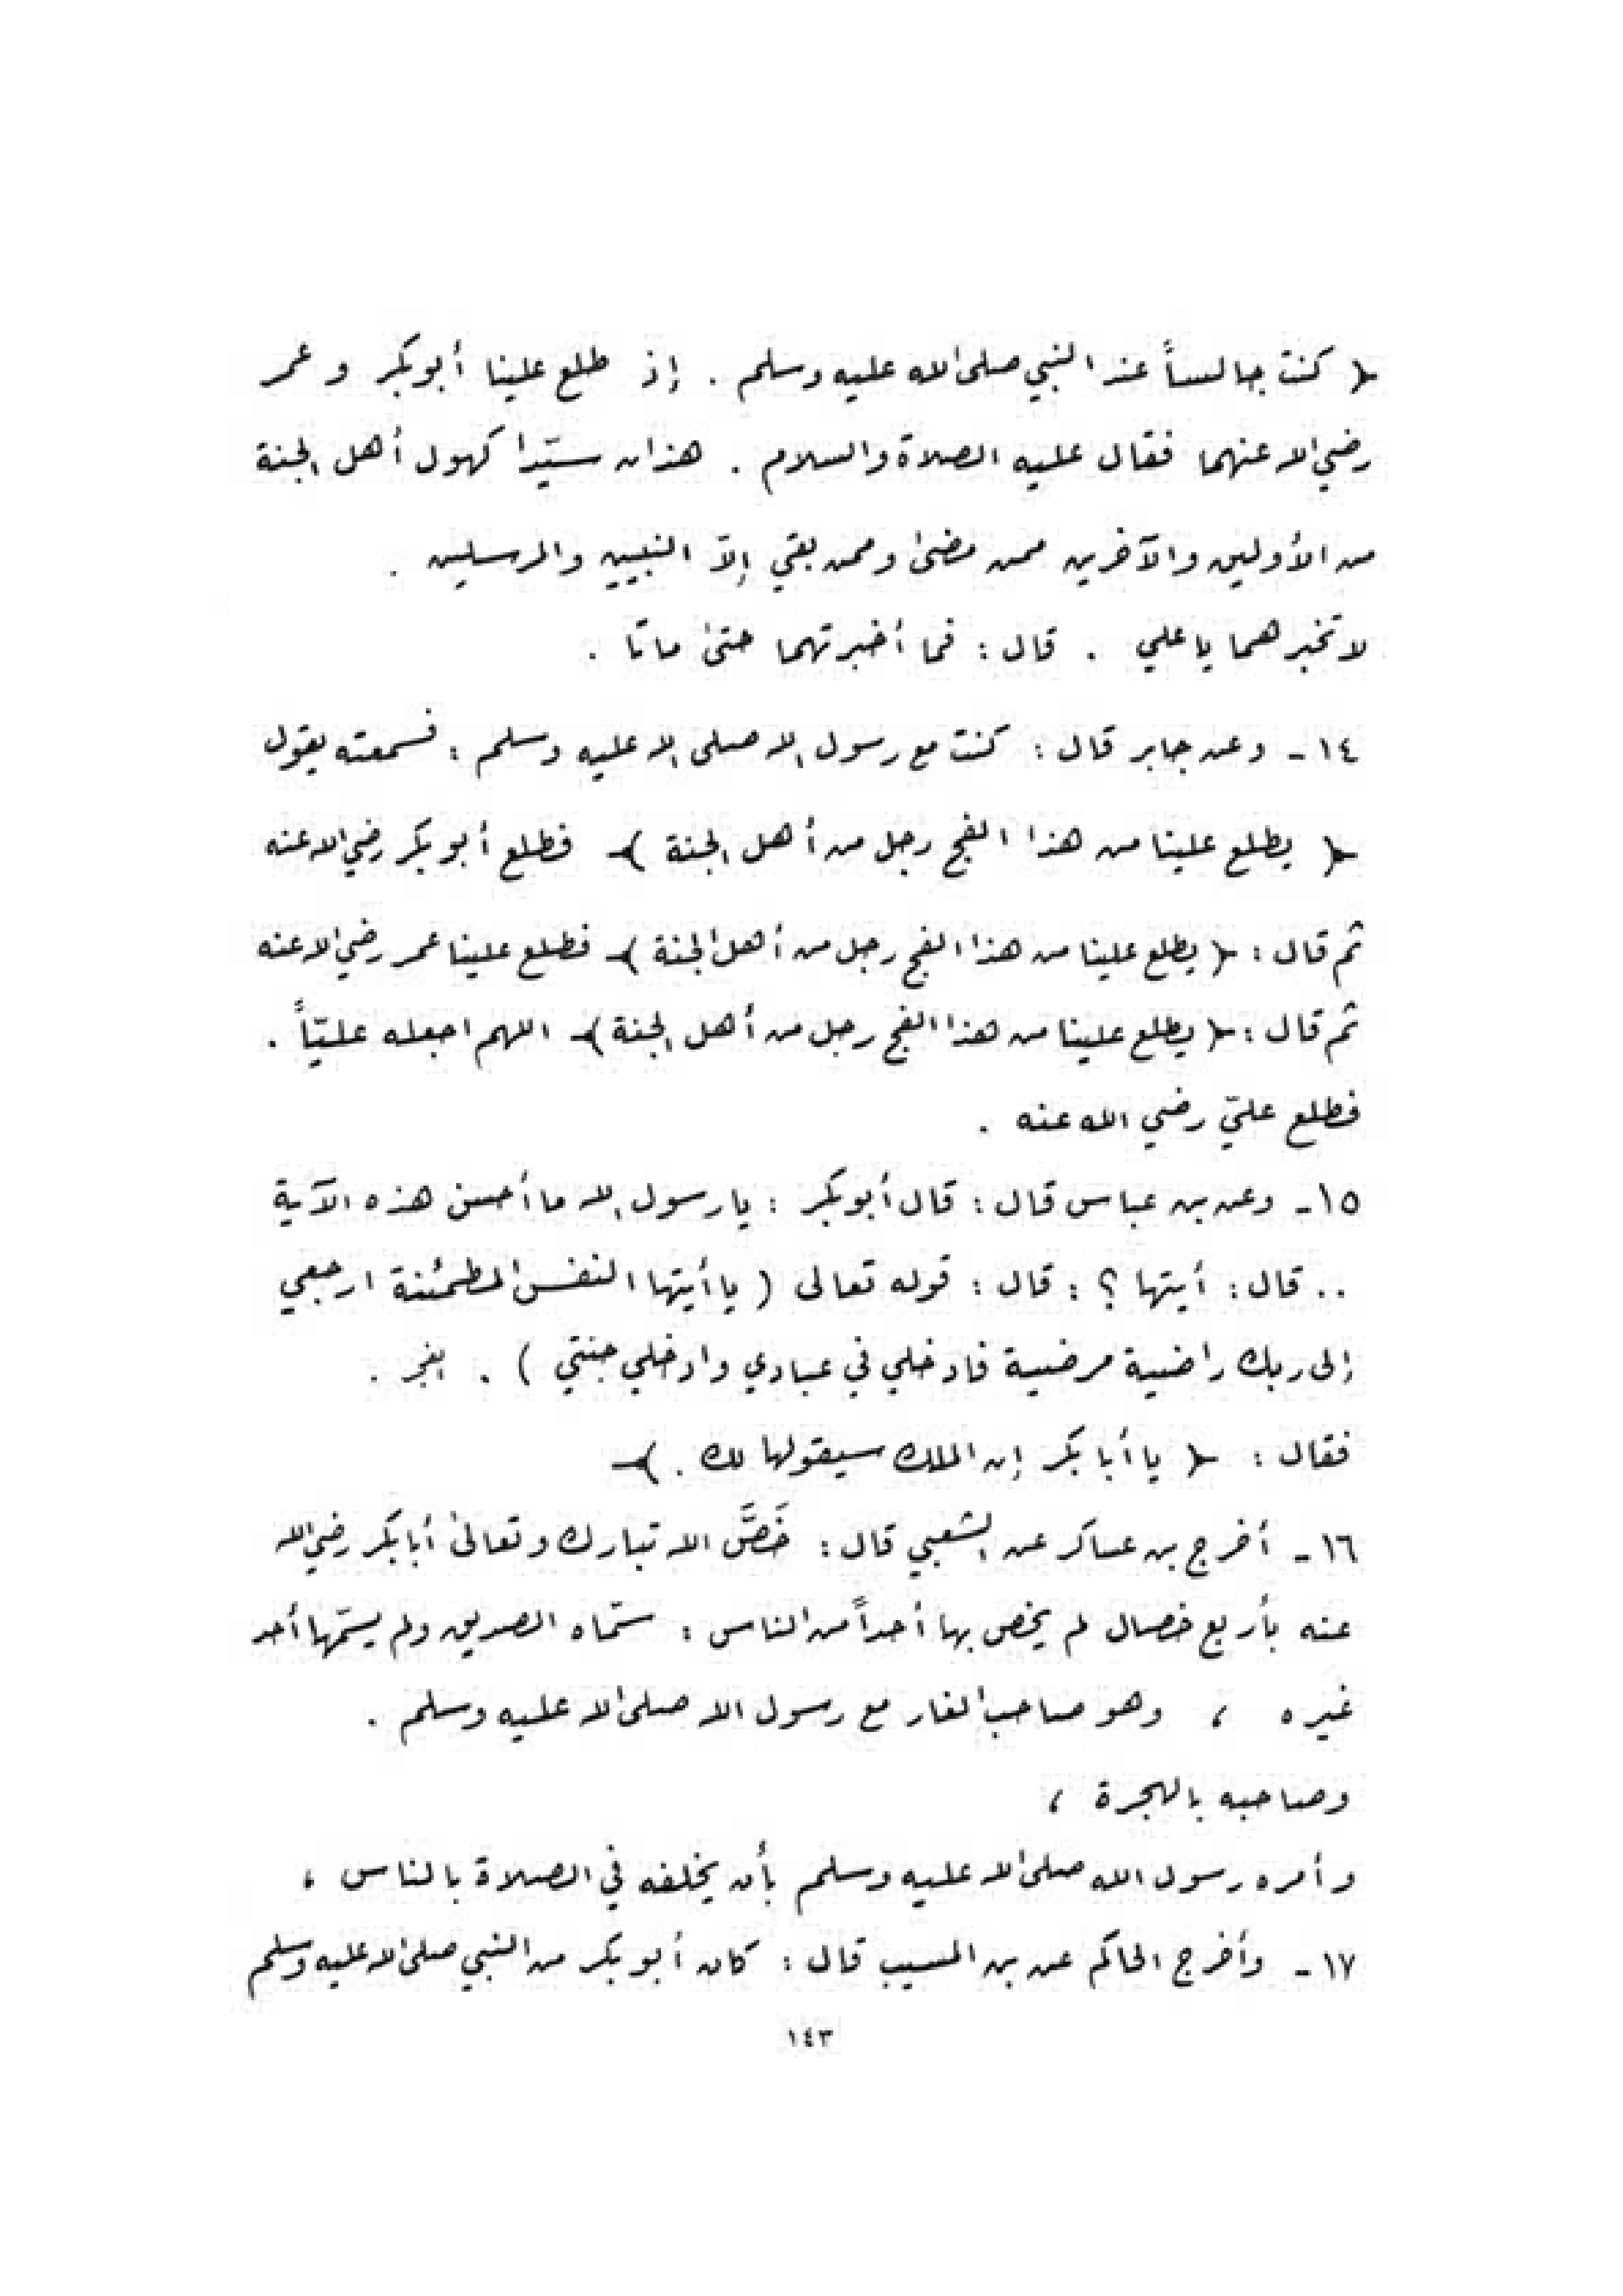 ﴿ كنت جالساً عند النبي صلى الله عليه وسلم . إذ طلع علينا أبو بكر و عمر
رضي الله عنهما فقال عليه الصلاة والسلام . هذان سيّدا كهول أهل الجنة
من الأولين والآخرين ممن مضىٰ وممن بقي إلاّ النبيين والمرسلين .
لا تخبرهما يا علي . قال : فما أخبرتهما حتىٰ ماتا .
١٤ - وعن جابر قال : كنت مع رسول الله صلى الله عليه وسلم : فسمعته يقول
﴿ يطلع علينا من هذا الفج رجل من أهل الجنة ﴾ فطلع أبو بكر رضي الله عنه
ثم قال : ﴿ يطلع علينا من هذا الفج رجل من أهل الجنة ﴾ فطلع علينا عمر رضي الله عنه
ثم قال : ﴿ يطلع علينا من هذا الفج رجل من أهل الجنة ﴾ اللهم اجعله عليّاً .
فطلع عليّ رضي الله عنه .
١٥ - وعن بن عباس قال : قال أبو بكر : يا رسول الله ما أحسن هذه الآية
.. قال : أيتها ؟ : قال : قوله تعالى ( يا أيتها النفس المطمئنة ارجعي
إلى ربك راضية مرضية فادخلي في عبادي وادخلي جنتي ) . الفجر .
فقال : ﴿ يا أبا بكر إن الملك سيقولها لك . ﴾
١٦ - أخرج بن عساكر عن الشعبي قال : خَصَّ الله تبارك وتعالىٰ أبا بكر رضي الله
عنه بأربع خصال لم يخص بها أحداً من الناس : سمّاه الصديق ولم يسمّها أحد
غيره ، وهو صاحب الغار مع رسول الله صلى الله عليه وسلم .
وصاحبه بالهجرة ،
وأمره رسول الله صلى الله عليه وسلم بأن يخلفه في الصلاة بالناس ،
١٧ - وأخرج الحاكم عن بن المسيب قال : كان أبو بكر من النبي صلى الله عليه وسلم
١٤٣